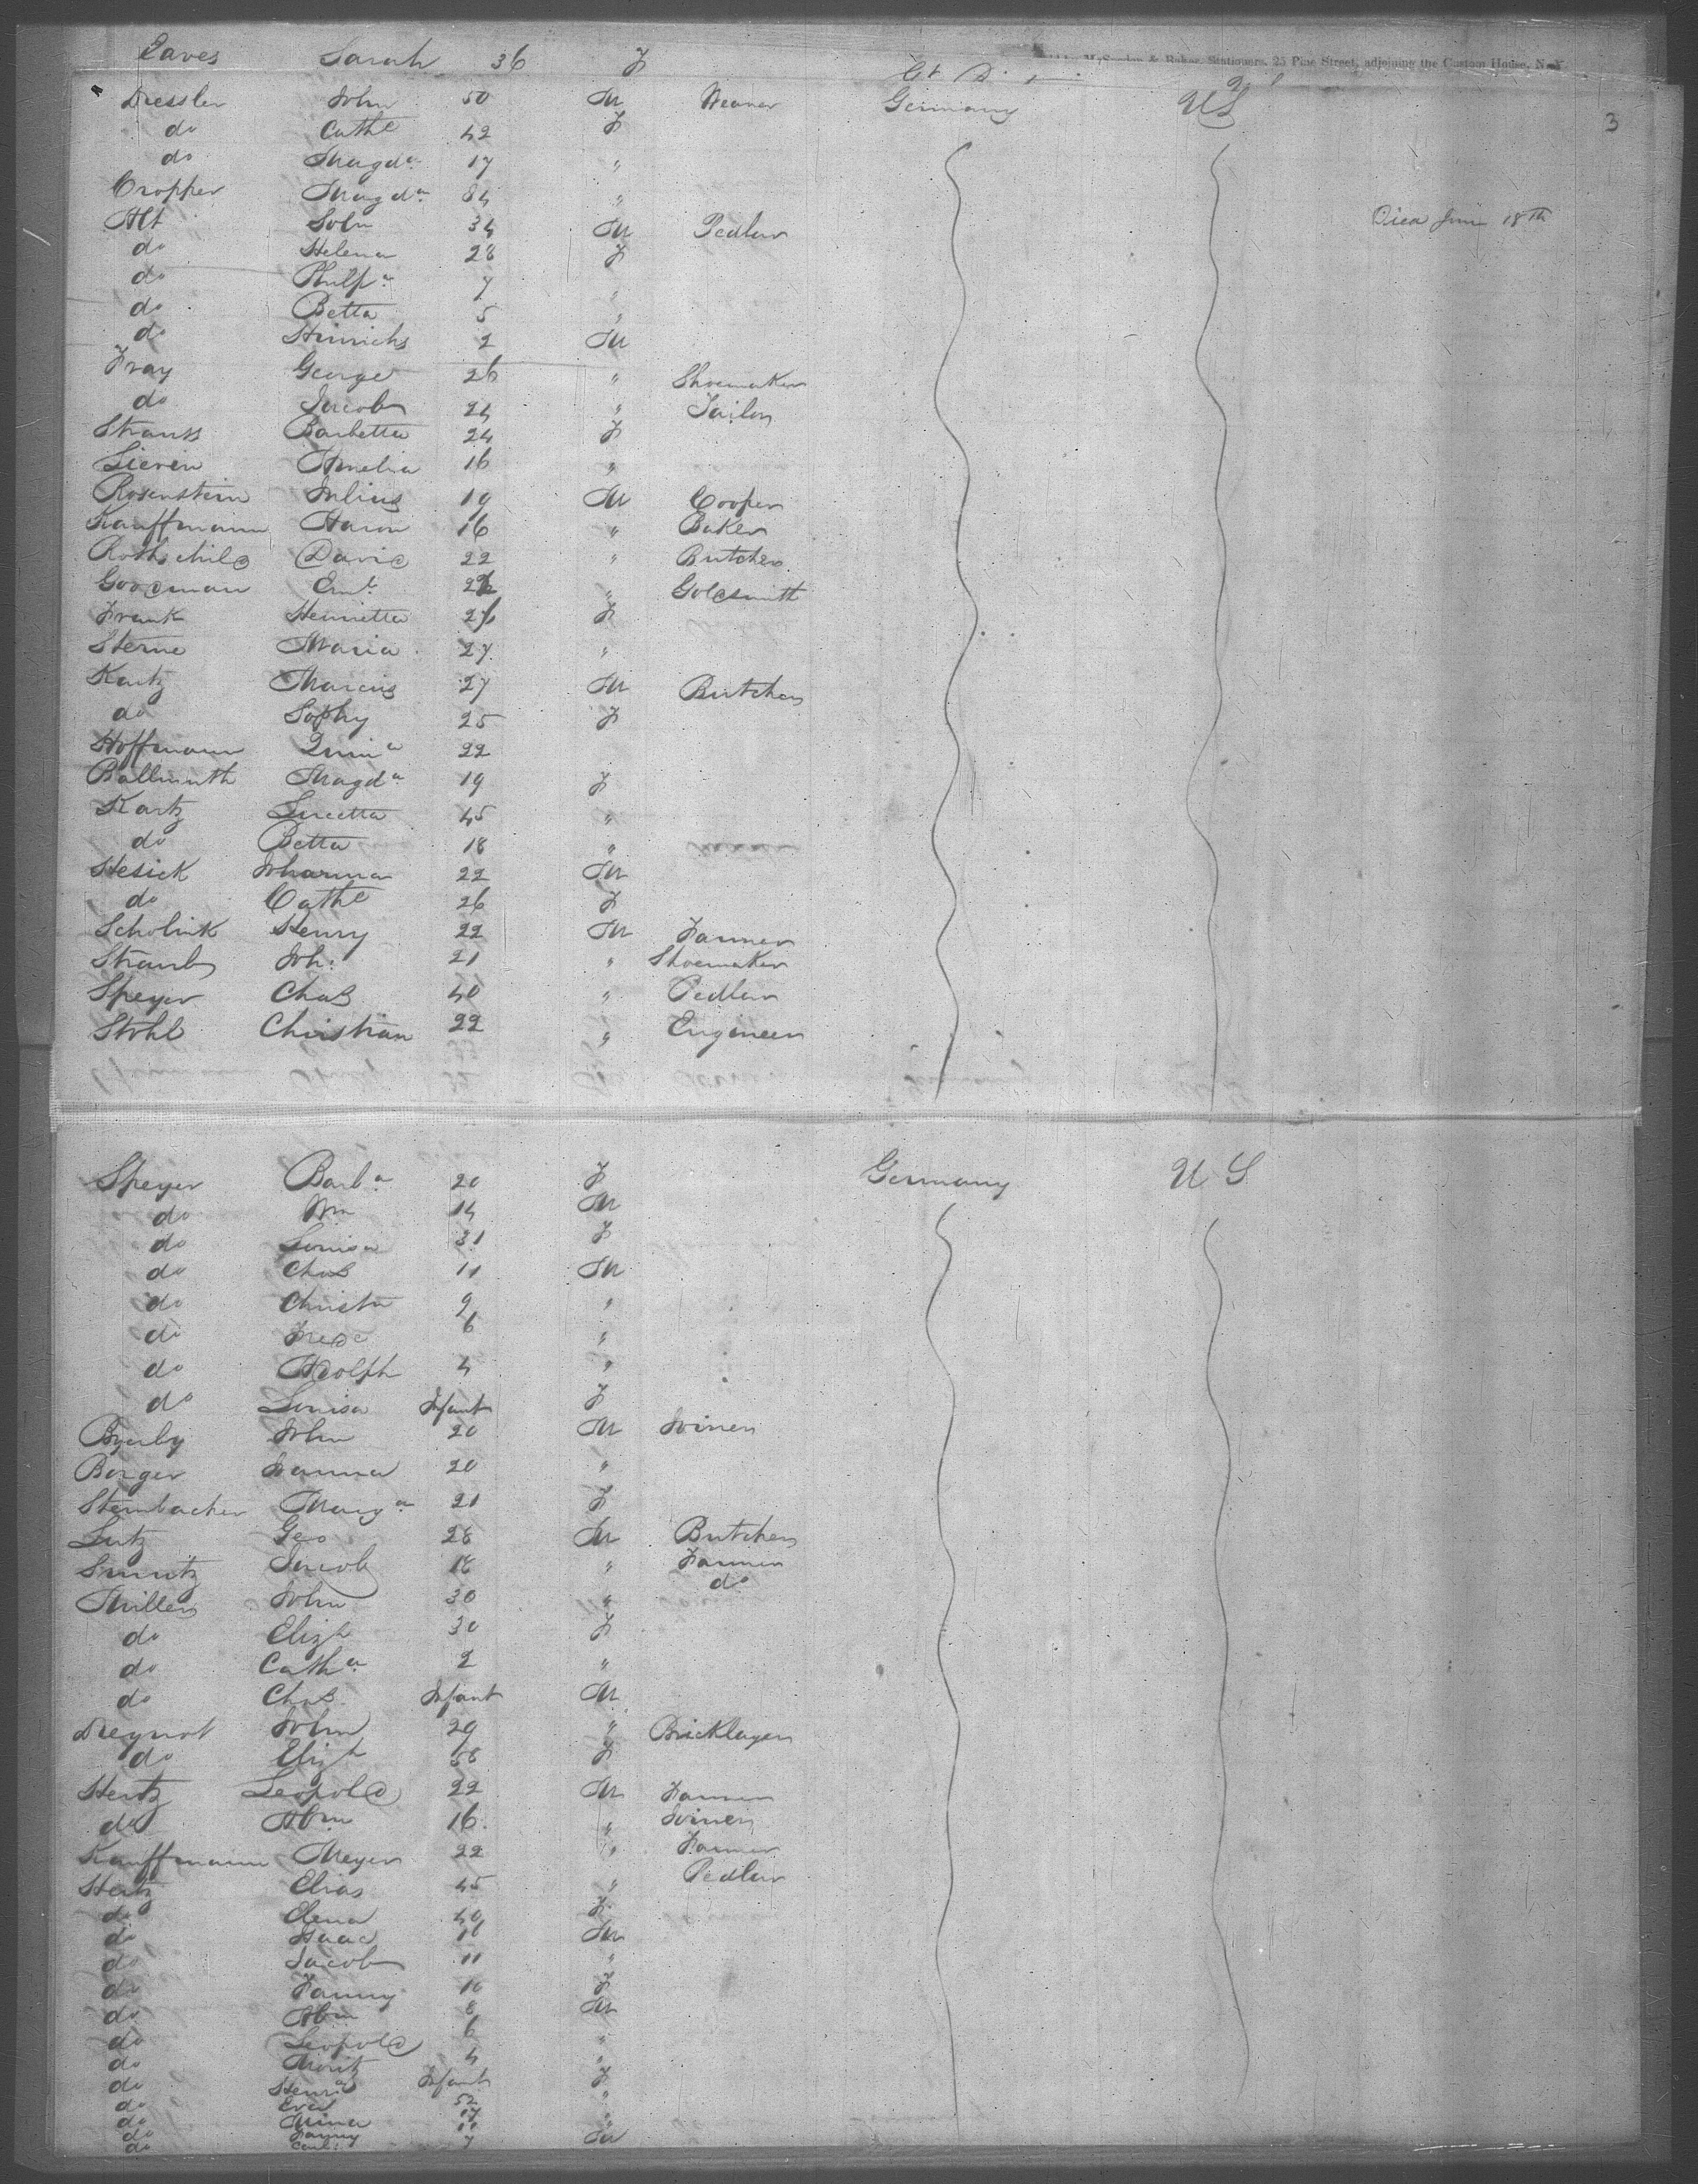 Eaves Sarah 36 F
Stationers, 25 Pine Street, adjoining the Custom House, N.Y.
Dressler John 50 M Weaver Germany US
3
do Cathe 42 F
do Magda 17 "
Cropper Magda 84 "
Alt John 34 M Pedlar Died June 18th
do Helena 28 F
do Philpa 7 "
do Betta 5 "
do Hinrichs 2 M
Fray George 26 " Shoemaker
do Jacob 24 " Tailor
Strauss Barbetta 24 F
Sieven Amelia 16 "
Rosenstein Julius 19 M Cooper
Kauffmann Aaron 16 " Baker
Rothschild David 22 " Butcher
Goodman Eml " Goldsmith
Frank Henrietta F
Sterne Maria 27 "
Kartz Marcus 27 M Butcher
do Sophy 25 F
Hoffmann 22
Ballmuth Magda 19 F
Kartz Lucetta 45 "
do Betta 18 "
Hesick Johanna 22 M
do Cathe 26 F
Scholink Henry 22 M Farmer
Straub Joh: 21 " Shoemaker
Speyer Chas 40 " Pedlar
Stohl Christian 22 " Engineer
Speyer Barba 20 F Germany US
do Wm 14 M
do Louisa 31 F
do Chas 11 M
do Christn 9 "
do Fred 6 "
do Adolph 4 "
do Louisa Infant F
John 20 M Joiner
Borger Joanna 20 "
Steinbacher Marga 21 F
Lutz Geo 28 M Butcher
Jacob 18 " Farmer
Miller John 30 " do
do Elizh 30 F
do Catha 2 "
do Chas Infant M
Dreynot John 29 " Bricklayer
do Elizh 58 F
Hertz Leopold 22 M Farmer
do Abm 16 " Joiner
Kauffmann Meyer 22 " Farmer
Hertz Elias 45 " Pedlar
do Elena 40 F
do Isaac 16 M
do Jacob 11 "
do Fanny 10 F
do Abm 8 M
do Leopold 6 "
do Moritz 4 "
do Henra Infant F
do Eva 52 "
do Mina 17 "
do Fanny 11 "
do Carl: 7 M